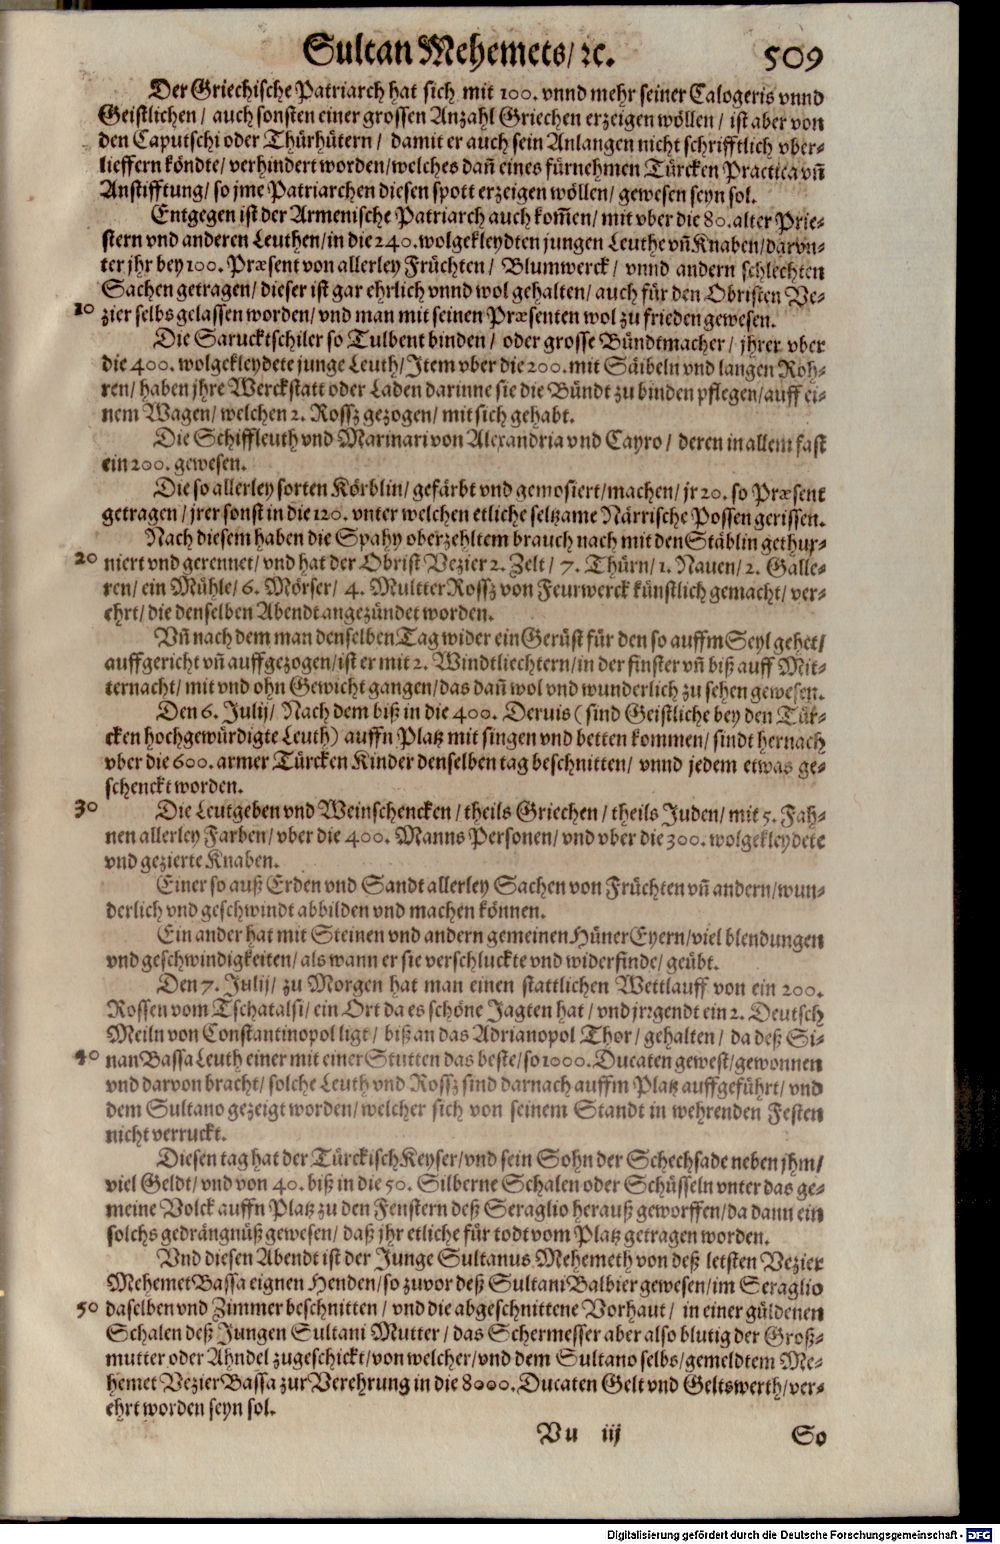 Sultan Mehemets/ ꝛc. 509
Der Griechische Patriarch hat sich mit 100. vnnd mehr seiner Calogeris vnnd
Geistlichen / auch sonsten einer grossen Anzahl Griechen erzeigen wöllen / ist aber von
den Caputschi oder Thürhütern / damit er auch sein Anlangen nicht schrifftlich vber-
lieffern köndte/ verhindert worden/welches dañ eines fürnehmen Türcken Practica vñ
Anstifftung/ so jme Patriarchen diesen spott erzeigen wöllen/ gewesen seyn sol.
Entgegen ist der Armenische Patriarch auch kom̃en/ mit vber die 80. alter Prie-
stern vnd anderen Leuthen/in die 240. wolgekleydten jungen Leuthe vñ Knaben/darvn-
ter jhr bey 100. Præsent von allerley Früchten/ Blumwerck/ vnnd andern schlechten
Sachen getragen/ dieser ist gar ehrlich vnnd wol gehalten/ auch für den Obristen Ve-
10 zier selbs gelassen worden/ vnd man mit seinen Præsenten wol zu frieden gewesen.
Die Sarucktschiler so Tulbent binden/ oder grosse Bündtmacher/ jhrer vber
die 400. wolgekleydete junge Leuth/ Item vber die 200. mit Säibeln vnd langen Röh-
ren/ haben jhre Werckstatt oder Laden darinne sie die Bündt zu binden pflegen/auff ei-
nem Wagen/ welchen 2. Rossz gezogen/ mit sich gehabt.
Die Schiffleuth vnd Marinari von Alexandria vnd Cayro/ deren in allem fast
ein 200. gewesen.
Die so allerley sorten Körblin/ gefärbt vnd gemosiert/machen/ jr 20. so Præsent
getragen/ jrer sonst in die 120. vnter welchen etliche seltzame Närrische Possen gerissen.
Nach diesem haben die Spahy oberzehltem brauch nach mit den Stäblin gethur-
20 niert vnd gerennet/ vnd hat der Obrist Vezier 2. Zelt/ 7. Thürn/ 1. Nauen/ 2. Galle-
ren/ ein Mühle/ 6. Mörser/ 4. Multter Rossz von Feurwerck künstlich gemacht/ ver-
ehrt/ die denselben Abendt angezündet worden.
Vñ nach dem man denselben Tag wider ein Gerüst für den so auffm Seyl gehet/
auffgericht vñ auffgezogen/ist er mit 2. Windtliechtern/in der finster vñ biß auff Mit-
ternacht/ mit vnd ohn Gewicht gangen/das dañ wol vnd wunderlich zu sehen gewesen.
Den 6. Julij/ Nach dem biß in die 400. Deruis (sind Geistliche bey den Tür-
cken hochgewürdigte Leuth) auffn Platz mit singen vnd betten kommen/ sindt hernach
vber die 600. armer Türcken Kinder denselben tag beschnitten/ vnnd jedem etwas ge-
schenckt worden.
30 Die Leutgeben vnd Weinschencken/ theils Griechen/ theils Juden/ mit 5. Fah-
nen allerley Farben/ vber die 400. Manns Personen/ vnd vber die 300. wolgekleydete
vnd gezierte Knaben.
Einer so auß Erden vnd Sandt allerley Sachen von Früchten vñ andern/wun-
derlich vnd geschwindt abbilden vnd machen können.
Ein ander hat mit Steinen vnd andern gemeinen Hüner Eyern/viel blendungen
vnd geschwindigkeiten/ als wann er sie verschluckte vnd widerfinde/ geübt.
Den 7. Julij/ zu Morgen hat man einen stattlichen Wettlauff von ein 200.
Rossen vom Tschatalsi/ ein Ort da es schöne Jagten hat/ vnd jrꝛgendt ein 2. Deutsch
Meiln von Constantinopol ligt/ biß an das Adrianopol Thor/ gehalten/ da deß Si-
40 nan Bassa Leuth einer mit einer Stutten das beste/ so 1000. Ducaten gewest/gewonnen
vnd darvon bracht/ solche Leuth vnd Rossz sind darnach auffm Platz auffgeführt/ vnd
dem Sultano gezeigt worden/ welcher sich von seinem Standt in wehrenden Festen
nicht verruckt.
Diesen tag hat der Türckisch Keyser/vnd sein Sohn der Schechsade neben jhm/
viel Geldt/ vnd von 40. biß in die 50. Silberne Schalen oder Schüsseln vnter das ge-
meine Volck auffn Platz zu den Fenstern deß Seraglio herauß geworffen/da dann ein
solchs gedrängnüß gewesen/ daß jhr etliche für todt vom Platz getragen worden.
Vnd diesen Abendt ist der Junge Sultanus Mehemeth von deß letsten Vezier
Mehemet Bassa eignen Henden/ so zuvor deß Sultani Balbier gewesen/im Seraglio
50 daselben vnd Zimmer beschnitten/ vnd die abgeschnittene Vorhaut/ in einer güldenen
Schalen deß Jungen Sultani Mutter/ das Schermesser aber also blutig der Groß-
mutter oder Ahndel zugeschickt/von welcher/vnd dem Sultano selbs/gemeldtem Me-
hemet Vezier Bassa zur Verehrung in die 8000. Ducaten Gelt vnd Geltswerth/ver-
ehrt worden seyn sol.
Vu iij So
Digitalisierung gefördert durch die Deutsche Forschungsgemeinschaft - DFG